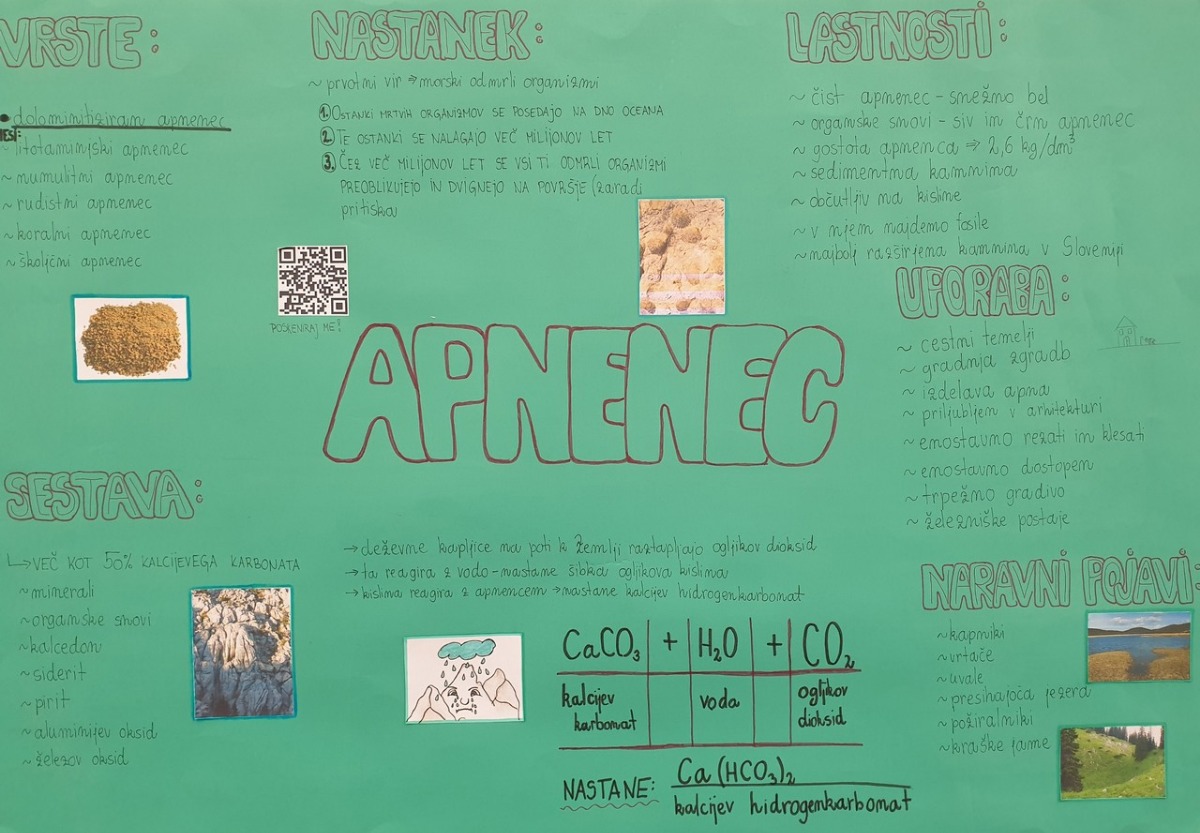 VRSTE:
• dolomitiziran apnenec
JEST:
~ litotamnijski apnenec
~ numulitni apnenec
~ rudistni apnenec
~ koralni apnenec
~ školjčni apnenec
NASTANEK:
~ prvotni vir ⇒ morski odmrli organizmi
1. OSTANKI MRTVIH ORGANIZMOV SE POSEDAJO NA DNO OCEANA
2. TE OSTANKI SE NALAGAJO VEČ MILIJONOV LET
3. ČEZ VEČ MILIJONOV LET SE VSI TI ODMRLI ORGANIZMI
PREOBLIKUJEJO IN DVIGNEJO NA POVRŠJE (zaradi
pritiska
POSKENIRAJ ME!
LASTNOSTI:
~ čist apnenec - snežno bel
~ organske snovi - siv in črn apnenec
~ gostota apnenca ⇒ 2,6 kg/dm³
~ sedimentna kamnina
~ občutljiv na kisline
~ v njem najdemo fosile
~ najbolj razširjena kamnina v Sloveniji
APNENEC
UPORABA:
~ cestni temelji
~ gradnja zgradb
~ izdelava apna
~ priljubljen v arhitekturi
~ enostavno rezati in klesati
~ enostavno dostopen
~ trpežno gradivo
~ železniške postaje
SESTAVA:
↳ VEČ KOT 50% KALCIJEVEGA KARBONATA
~ minerali
~ organske snovi
~ kalcedon
~ siderit
~ pirit
~ aluminijev oksid
~ železov oksid
→ deževne kapljice na poti k Zemlji raztapljajo ogljikov dioksid
→ ta reagira z vodo - nastane šibka ogljikova kislina
→ kislina reagira z apnencem → nastane kalcijev hidrogenkarbonat
CaCO₃ + H₂O + CO₂
kalcijev karbonat voda ogljikov dioksid
NASTANE: Ca(HCO₃)₂
kalcijev hidrogenkarbonat
NARAVNI POJAVI:
~ kapniki
~ vrtače
~ uvale
~ presihajoča jezera
~ požiralniki
~ kraške jame